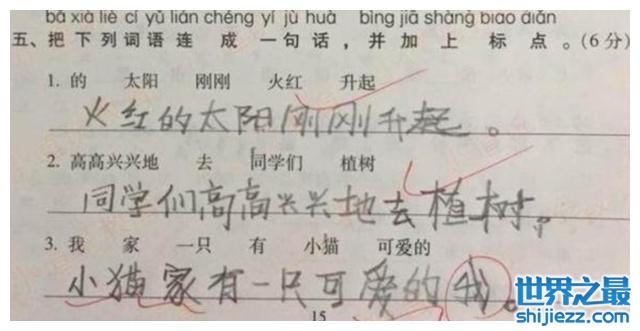 bǎ xià liè cí yǔ lián chéng yí jù huà bìng jiā shàng biāo diǎn
五、把下列词语连成一句话，并加上标点。(6分)
1. 的 太阳 刚刚 火红 升起
火红的太阳刚刚升起。
2. 高高兴兴地 去 同学们 植树
同学们高高兴兴地去植树。
3. 我 家 一只 有 小猫 可爱的
小猫家有一只可爱的我。
15
世界之最
shijiezz.com